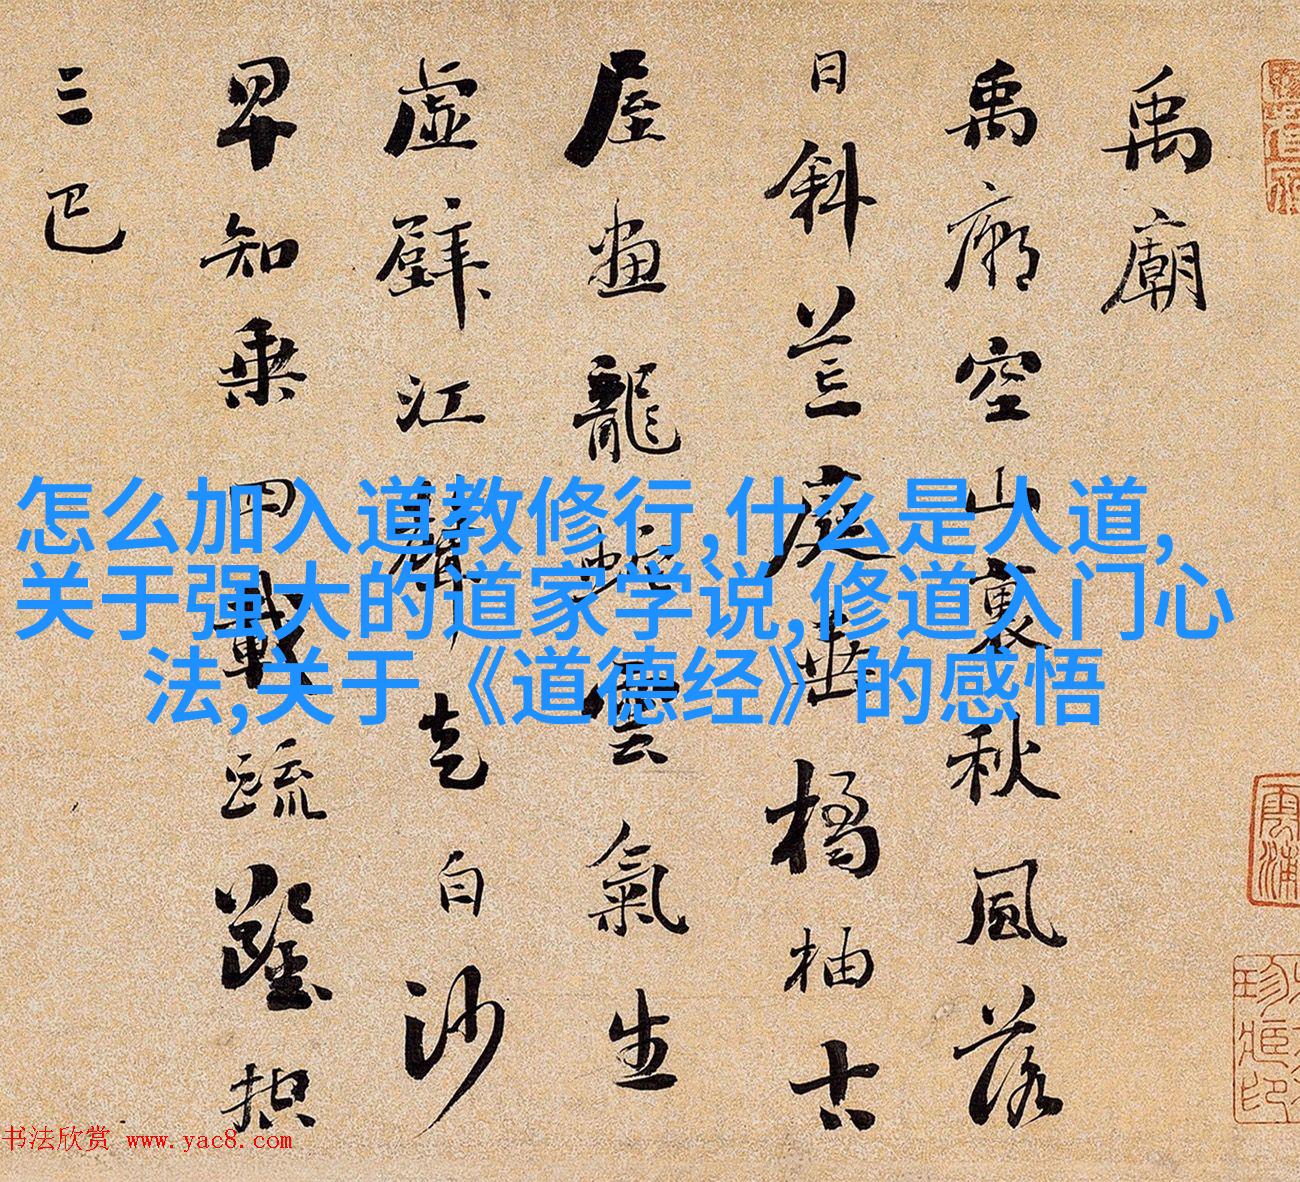 禹廟
禹廟空山裏秋風落
日斜荒庭垂橘柚古
屋畫龍蛇雲氣生
虛壁江聲走白沙
早知乘四載疏鑿控
三巴
怎么加入道教修行,什么是人道,
关于强大的道家学说,修道入门心
法,关于《道德经》的感悟
书法欣赏 www.yac8.com